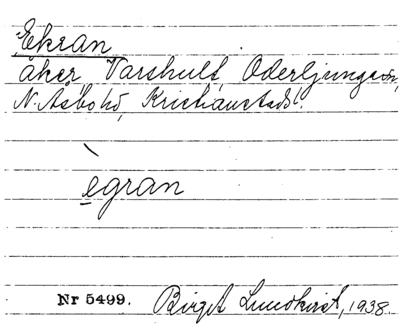 Ekran
åker, Varshult, Oderljunga sn,
N. Åsbo hd, Kristianstads l.
ègran
Nr 5499. Birgit Lundkvist, 1938.